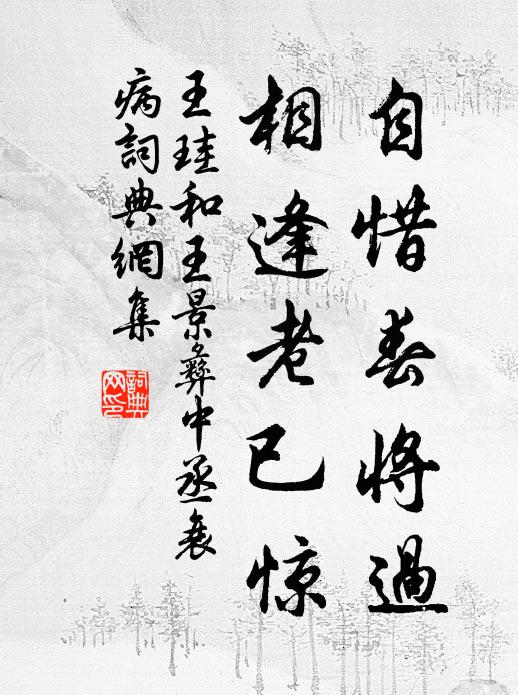 自惜春將過
相逢老已惊
王珪和王景彝中丞衰
病詞典網集
詞典
网印